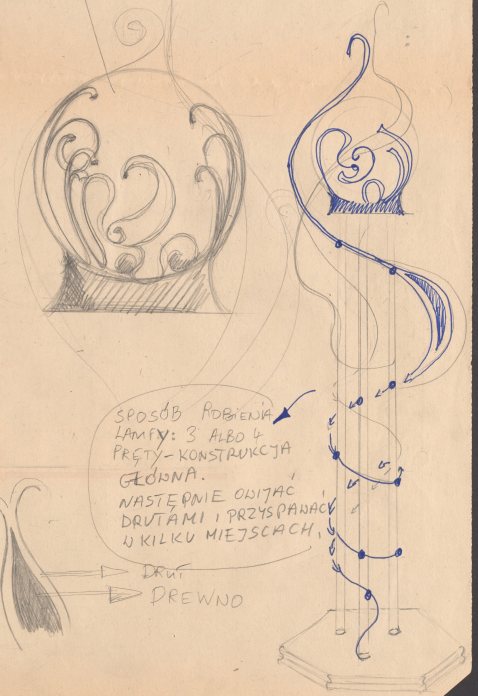 SPOSÓB ROBIENIA
LAMPY: 3 ALBO 4
PRĘTY-KONSTRUKCJA
GŁÓWNA.
NASTĘPNIE OWIJAĆ
DRUTAMI I PRZYSPAWAĆ
W KILKU MIEJSCACH.
DRUT
DREWNO